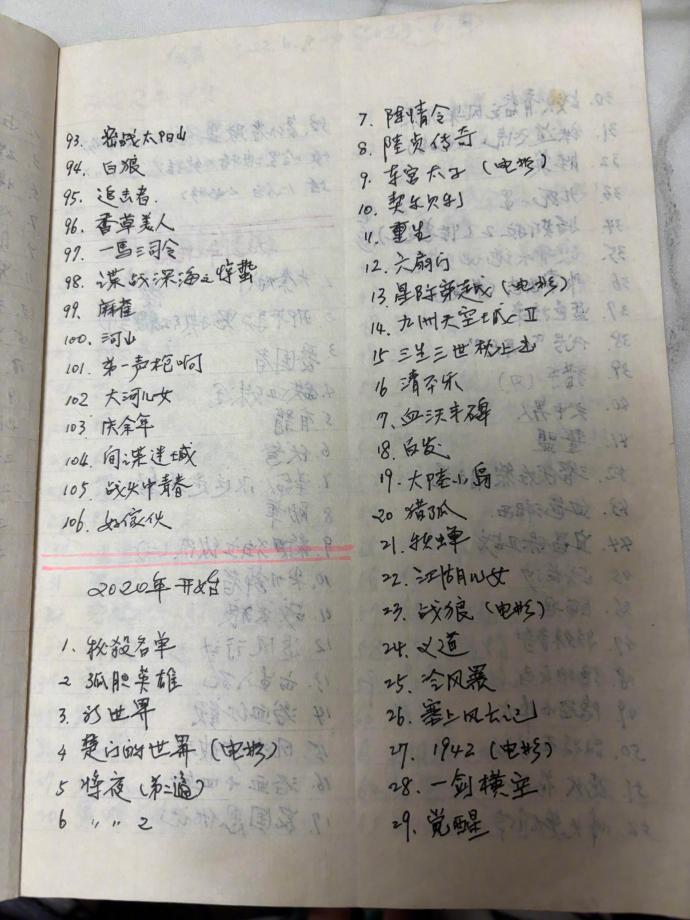 93. 密战太阳山
94. 白狼
95. 追击者.
96. 香草美人
97. 一馬三司令
98. 谍战深海之惊蛰
99. 麻雀
100. 河山
101. 第一声枪响
102 大河儿女
103 庆余年
104. 间谍迷城
105. 战火中青春
106. 好傢伙
2020年开始
1. 秘殺名单
2 孤胆英雄
3.
4 楚门的世界(电影)
5 将夜(第二遍)
6 〃 〃 2
7. 陈情令
8 陸贞传奇
9. 东宫太子(电影)
10. 契尔贝利
11. 重生
12. 六扇门
13. 星际穿越(电影)
14. 九州天空城Ⅱ
15 三生三世枕上书
16 清平乐
17. 血沃丰碑
18. 白发
19. 大陸小島
20 猎狐
21. 秋蝉
22. 江湖儿女
23. 战狼(电影)
24. 义道
25. 冷风暴
26. 塞上风云记
27. 1942(电影)
28. 一剑横空
29. 覚醒